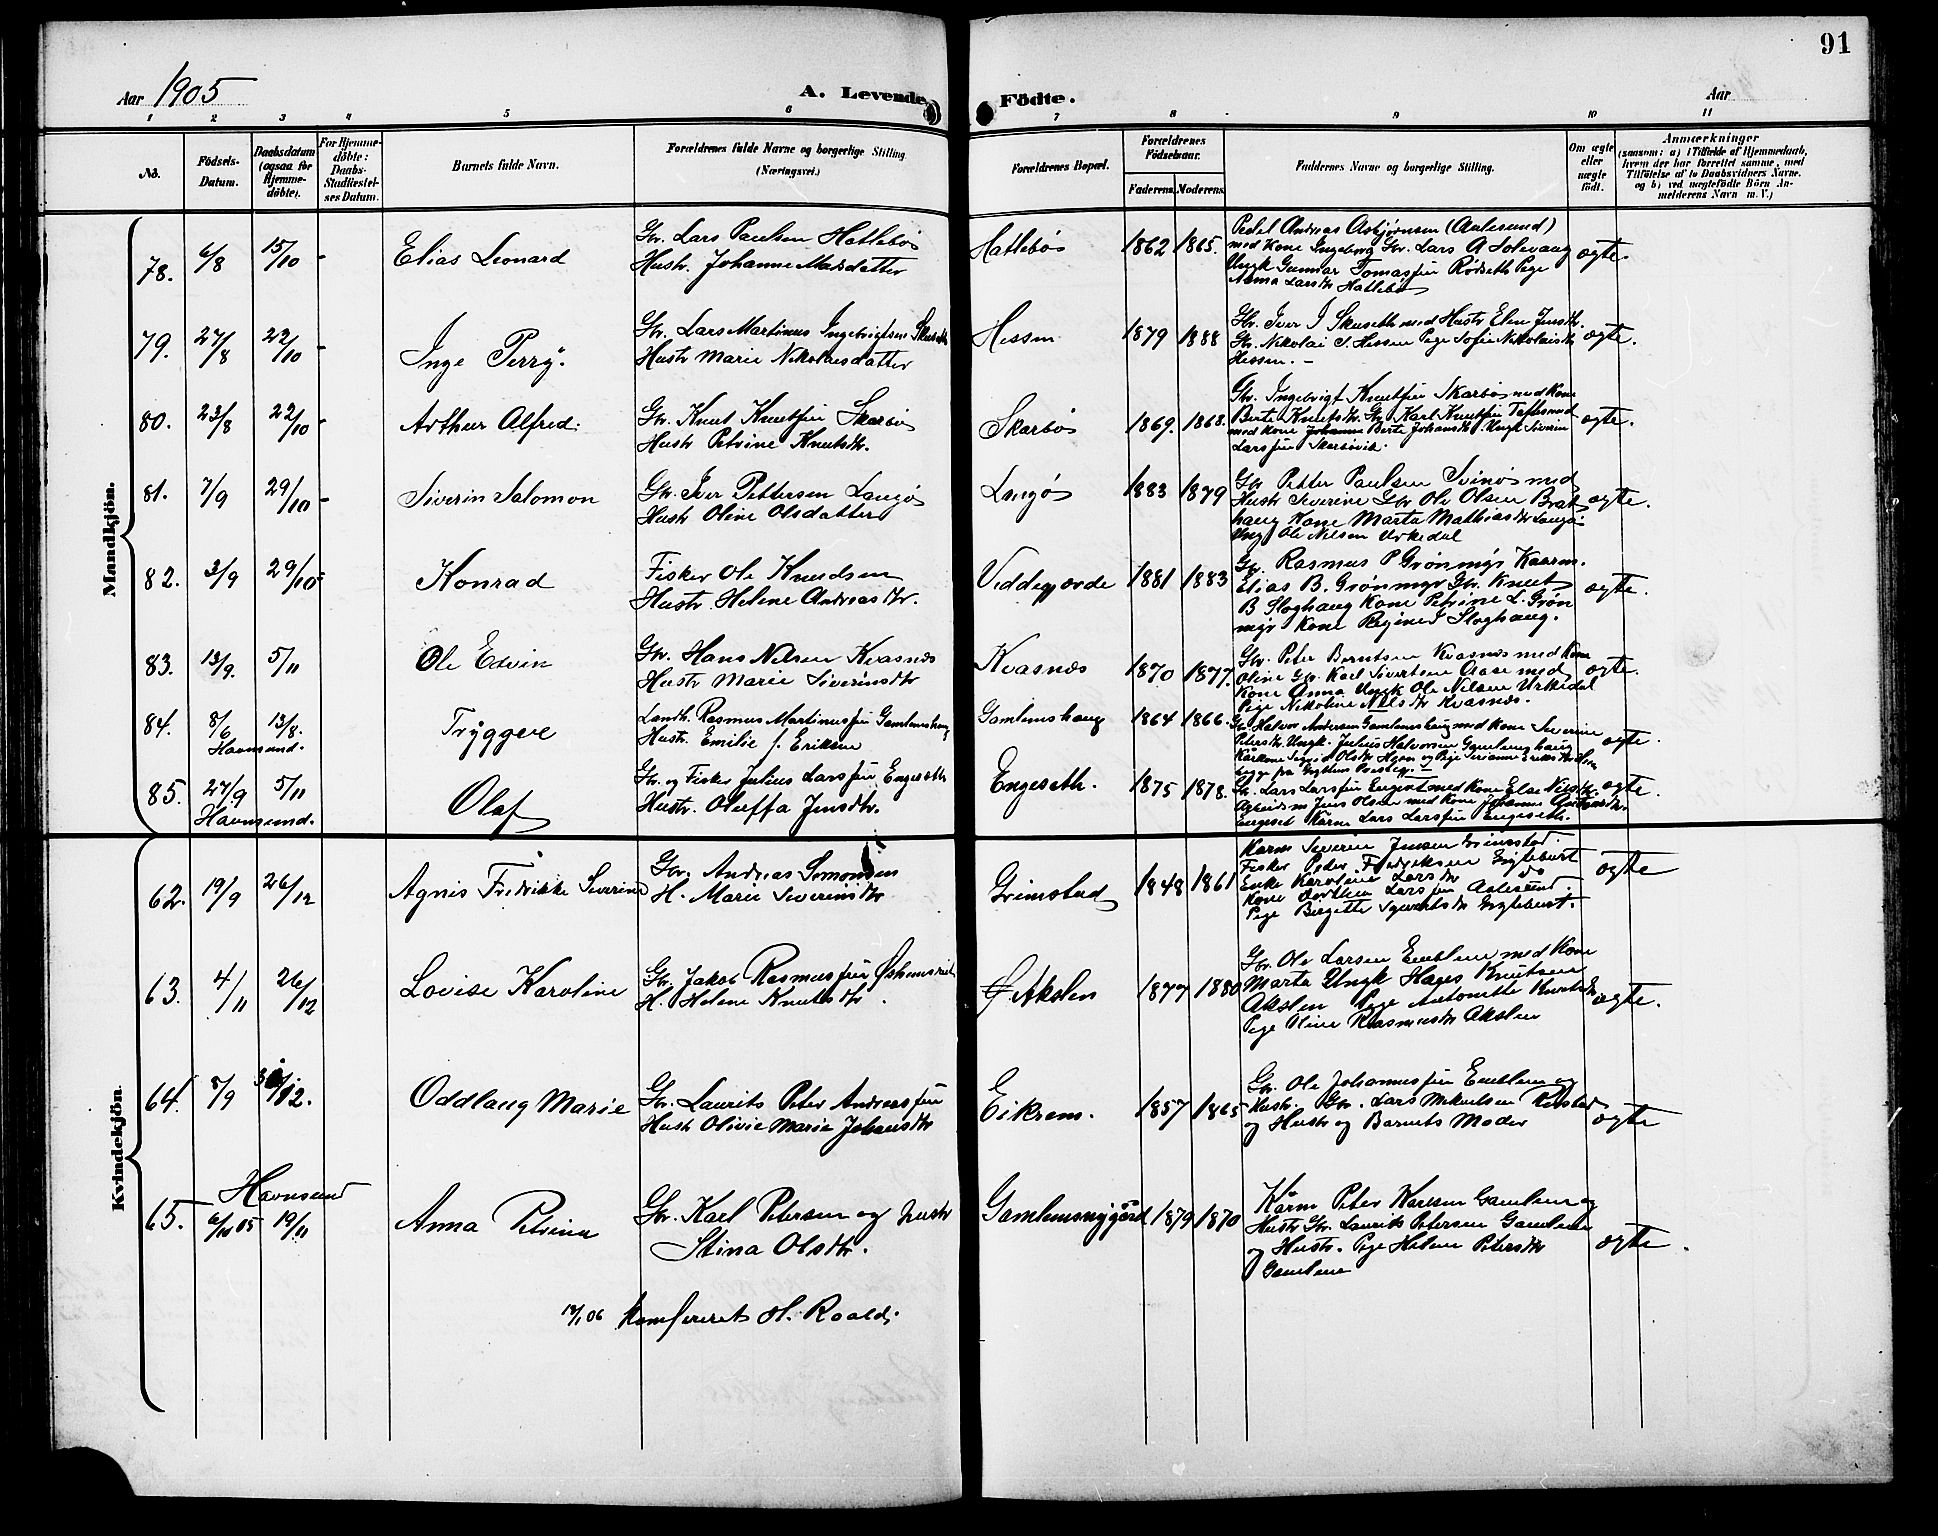 91
Aar 1905
A. Levende
Födte.
Aar
1 2 3 4 5 6 7 8 9 10 11
No.
Födsels-Datum.
Daabsdatum (ogsaa for Hjemme-döbte).
For Hjemme-döbte: Daabs-Stadfæstel-ses Datum.
Barnets fulde Navn.
Forældrenes fulde Navne og borgerlige Stilling (Næringsvei.)
Forældrenes Bopæl.
Forældrenes Födselsaar.
Faderens. Moderens.
Faddernes Navne og borgerlige Stilling.
Om ægte eller uægte födt.
Anmærkninger
(saasom: a) i Tilfælde af Hjemmedaab, hvem der har forrettet samme, med Tilföielse af to Daabsvidners Navne. og b) ved uægtefödte Börn An-melderens Navn m. V.)
Mandkjön.
78. 6/8 15/10 - Elias Leonard
Gbr. Lars Paulsen Hatlebøs
Hustr. Johanne Marsdatter
Hatlebøs 1862 1865.
Pedel Andreas Asbjørnsen (Aalesund)
med Kone Ingeborg Gbr. Lars A Solevaag
Ungk Gunnar Tomassen Rødseth Pige
Anna Larsdtr Hatlebø
ægte.
79. 27/8 22/10 - Inge Perry.
Gbr. Lars Martinus Ingebrigtsen Skuseth
Hustr Marie Nikolaisdatter
Hessen 1879 1888
Gbr. Iver I Skuseth med Hustr Elen Jensdtr.
Gbr. Nikolai S. Hessen Pige Sofie Nikolaisdtr
Hessen. -
ægte.
80. 23/8 22/10 - Arthur Alfred.
Gbr. Knut Knutsen Skarbø
Hustr. Petrine Knutsdtr.
Skarbø 1869. 1868.
Gbr. Ingebrigt Knutsen Skarbø med Kone
Berte Knutsdtr. Gbr. Karl Knutsen
med Kone Johanne Berte Johansdtr. Ungk Siverin
Larssen Skarbøvik.
ægte.
81. 7/9 29/10 - Siverin Salomon
Gbr. Iver Pettersen Langø
Hustr Oline Olsdatter
Langø 1883 1879
Gbr Petter Paulsen Svinø med
Hustr Severine Gbr Ole Olsen Brat
haug Kone Marta Mathiasdtr Langø
Ung Ole Nilsen Urkedal
ægte.
82. 3/9 29/10 - Konrad
Fisker Ole Knudsen
Hustr. Helene Andreasdtr.
Viddegjærde 1881 1883
Gbr. Rasmus P Grønmyr Kaarm.
Elias B. Grønmyr Gbr. Knut
B Sloghaug Kone Petrine L. Grøn
myr Kone Regine I Sloghaug.
ægte.
83. 13/9. 5/11 Ole Edvin
Gbr. Hans Nilsen Kvasnes
Hustr Marie Siverinsdtr
Kvasnes 1870 1877.
Gbr. Peter Berntsen Kvasnes med Kone
Oline Gbr. Karl Sivertsen Aase med
Kone Anna Ungk Ole Nilsen Urkedal
Pige Nikoline Nilsdtr Kvasnes.
ægte.
84. 8/6 13/8. Tryggve
Havnsund.
Landh. Rasmus Martinussen Gamlemshaug
Hustr. Emilie f. Eriksen
Gamlemshaug 1864 1866.
Gbr Halvor Andersen Gamlemshaug med Kone Severine
Petersdtr. Ungk. Julius Halvorsen Gamlemshaug
ægte.
85. 27/9 5/11 Olaf
Havnsund.
Gbr. og Fisker Julius Larssen Engeseth
Hustr. Oluffa Jensdtr.
Engeseth. 1875 1878.
Gbr. Lars Larssen Engeset med Kone Else Nilsdtr.
Arbeidsm Jens Olsen med Kone Johanne
Engeset Kårm Lars Larssen Engeseth.
ægte.
Kvindekjön.
62. 19/9 26/12 Agnis Fredrikke Severine
Gbr. Andreas Simonsen
H. Marie Severinsdtr
Grimstad 1848 1861
Karm Severin Jensen Grimstad.
Fisker Peder Fredriksen
Enke Karoline Larsdtr do
Kone Dorthea Larssen Aalesund.
Pige Bergitte Syvertsdtr
ægte
63. 4/11 26/12 Lovise Karoline
Gbr. Jakob Rasmussen
H. Helene Knutsdtr.
Ø Akslen 1877 1880
Gbr. Ole Larsen Emblem med Kone
Marta Ungk Hages Knutsen
Akslen Pige Antonette Knutsdtr
Pige Oline Rasmusdtr Akslen
ægte.
64. 5/9 /12. Oddlaug Marie
Gbr. Laurits Peter Andreassen
Hustr Olivie Marie Johansdtr
Eikrem. 1857 1865
Gbr. Ole Johannessen Emblem og
Hustr. Gbr. Lars Mikalsen
og Hustr og Barnets Moder
ægte
Havnsund
65. 6/10 05 19/11 Anna Petrina
Gbr. Karl Petersen og hustr
Stina Olsdtr.
Gamlemsnygård 1879 1870
Kårm Peter Karlsen Gamlem og
Hustr Gbr. Laurits Petersen Gamlem
og Hustr. Pige Helene Petersdtr
Gamlem
ægte.
/1 06 Konfereret H. Roald.